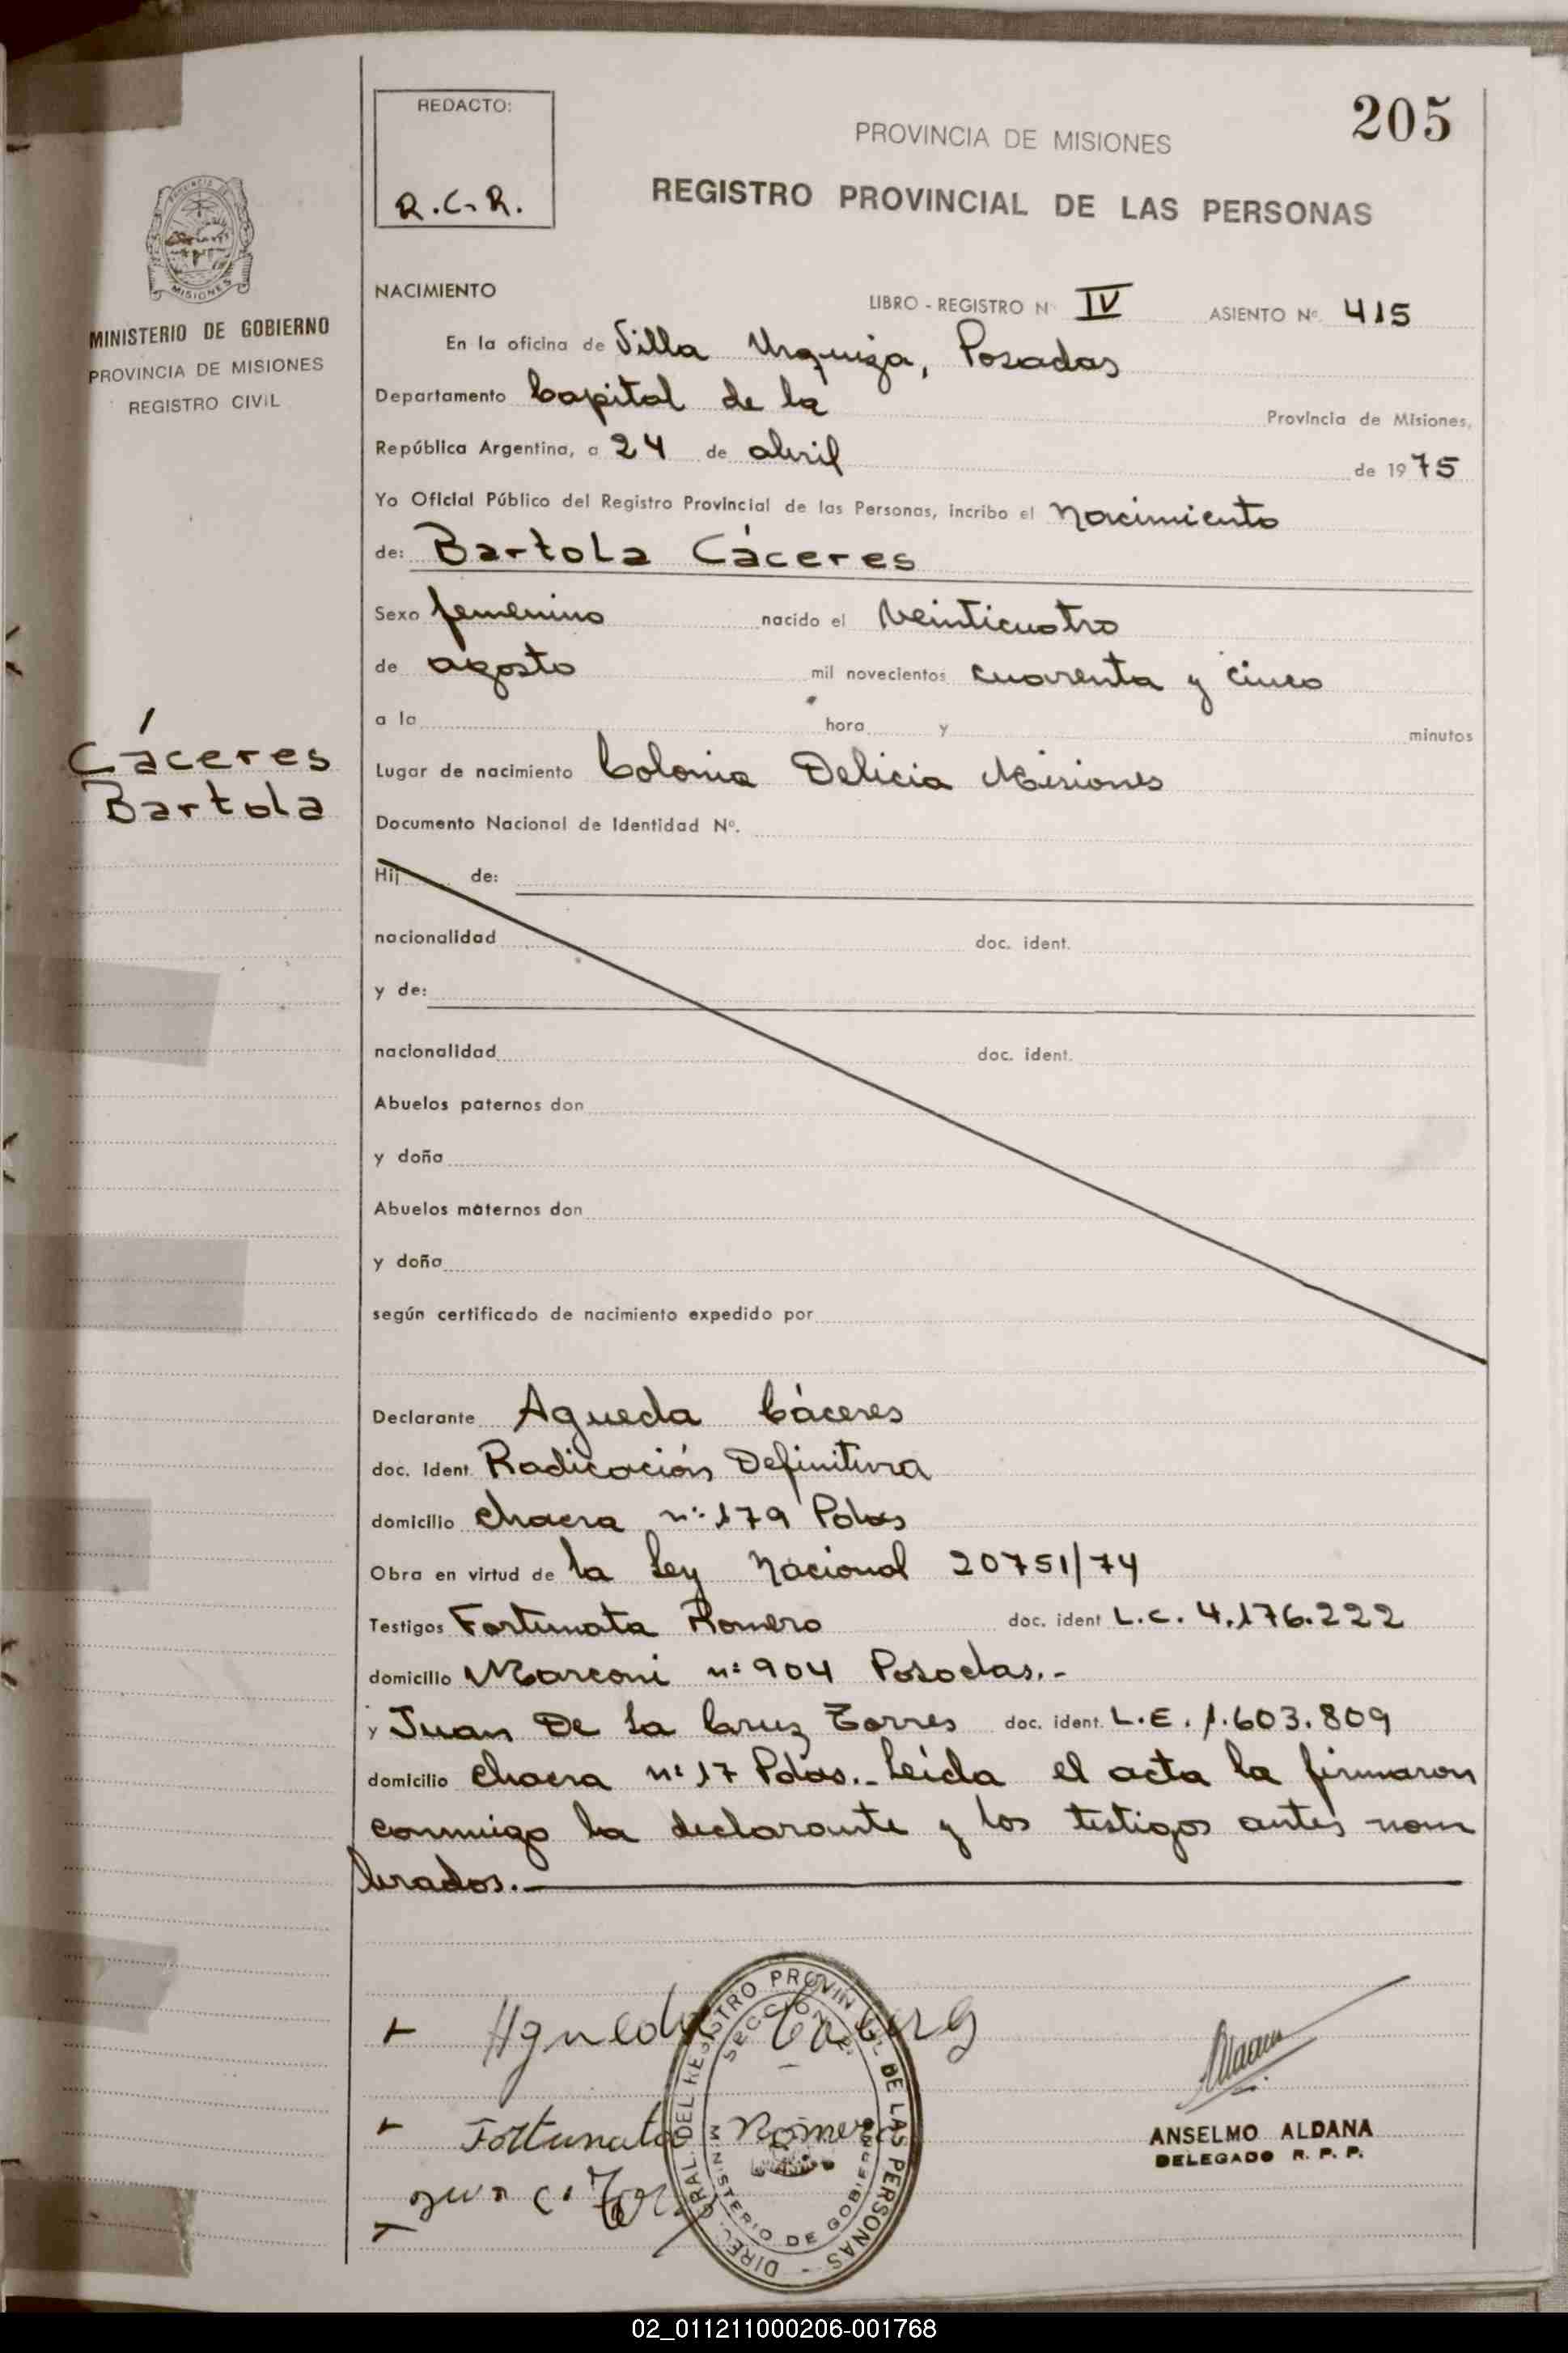 205
REDACTO:
R.C.R.
PROVINCIA DE MISIONES
REGISTRO PROVINCIAL DE LAS PERSONAS
MISIONES
MINISTERIO DE GOBIERNO
PROVINCIA DE MISIONES
REGISTRO CIVIL
NACIMIENTO
LIBRO - REGISTRO N° IV ASIENTO Nº. 415
En la oficina de Villa Urquiza, Posadas
Departamento Capital de la Provincia de Misiones,
República Argentina, a 24 de abril de 1975
Yo Oficial Público del Registro Provincial de las Personas, incribo el nacimiento
de: Bartola Cáceres
Sexo femenino nacido el veinticuatro
de agosto mil novecientos cuarenta y cinco
a la hora y minutos
Cáceres
Bartola
Lugar de nacimiento Colonia Delicia Misiones
Documento Nacional de Identidad Nº.
Hij de:
nacionalidad doc. ident.
y de:
nacionalidad doc. ident.
Abuelos paternos don
y doña
Abuelos maternos don
y doña
según certificado de nacimiento expedido por
Declarante Agueda Cáceres
doc. Ident. Radicación Definitiva
domicilio chacra nº 179 Pdas
Obra en virtud de la Ley Nacional 20751/74
Testigos Fortunata Romero doc. ident L.C. 4.176.222
domicilio Marconi nº 904 Posadas.-
y Juan De la Cruz Torres doc. ident. L.E. 1.603.809
domicilio chacra nº 17 Pdas.- Leída el acta la firmaron
conmigo la declarante y los testigos antes nom
brados.-
Agueda
Fortunata Romero
DIREC. GRAL DEL REGISTRO PROVIN L DE LAS PERSONAS -
SECCION
MINISTERIO DE GOBIERNO
ANSELMO ALDANA
DELEGADO R. P. P.
02_011211000206-001768